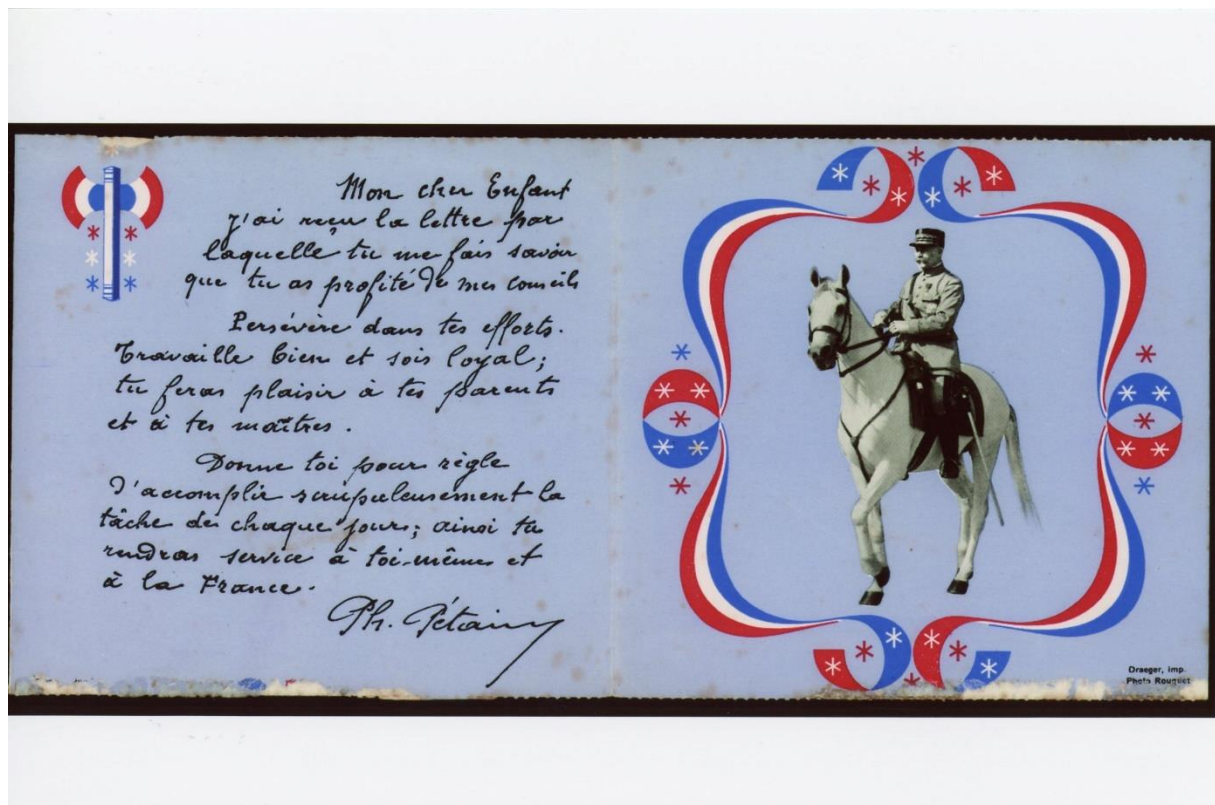 Mon cher Enfant
J'ai reçu la lettre par
laquelle tu me fais savoir
que tu as profité de mes conseils
Persévère dans tes efforts.
Travaille bien et sois loyal;
tu feras plaisir à tes parents
et à tes maîtres.
Donne toi pour règle
d'accomplir scrupuleusement la
tâche de chaque jours; ainsi tu
rendras service à toi-même et
à la France.
Ph. Pétain
Draeger, imp.
Photo Rouquet